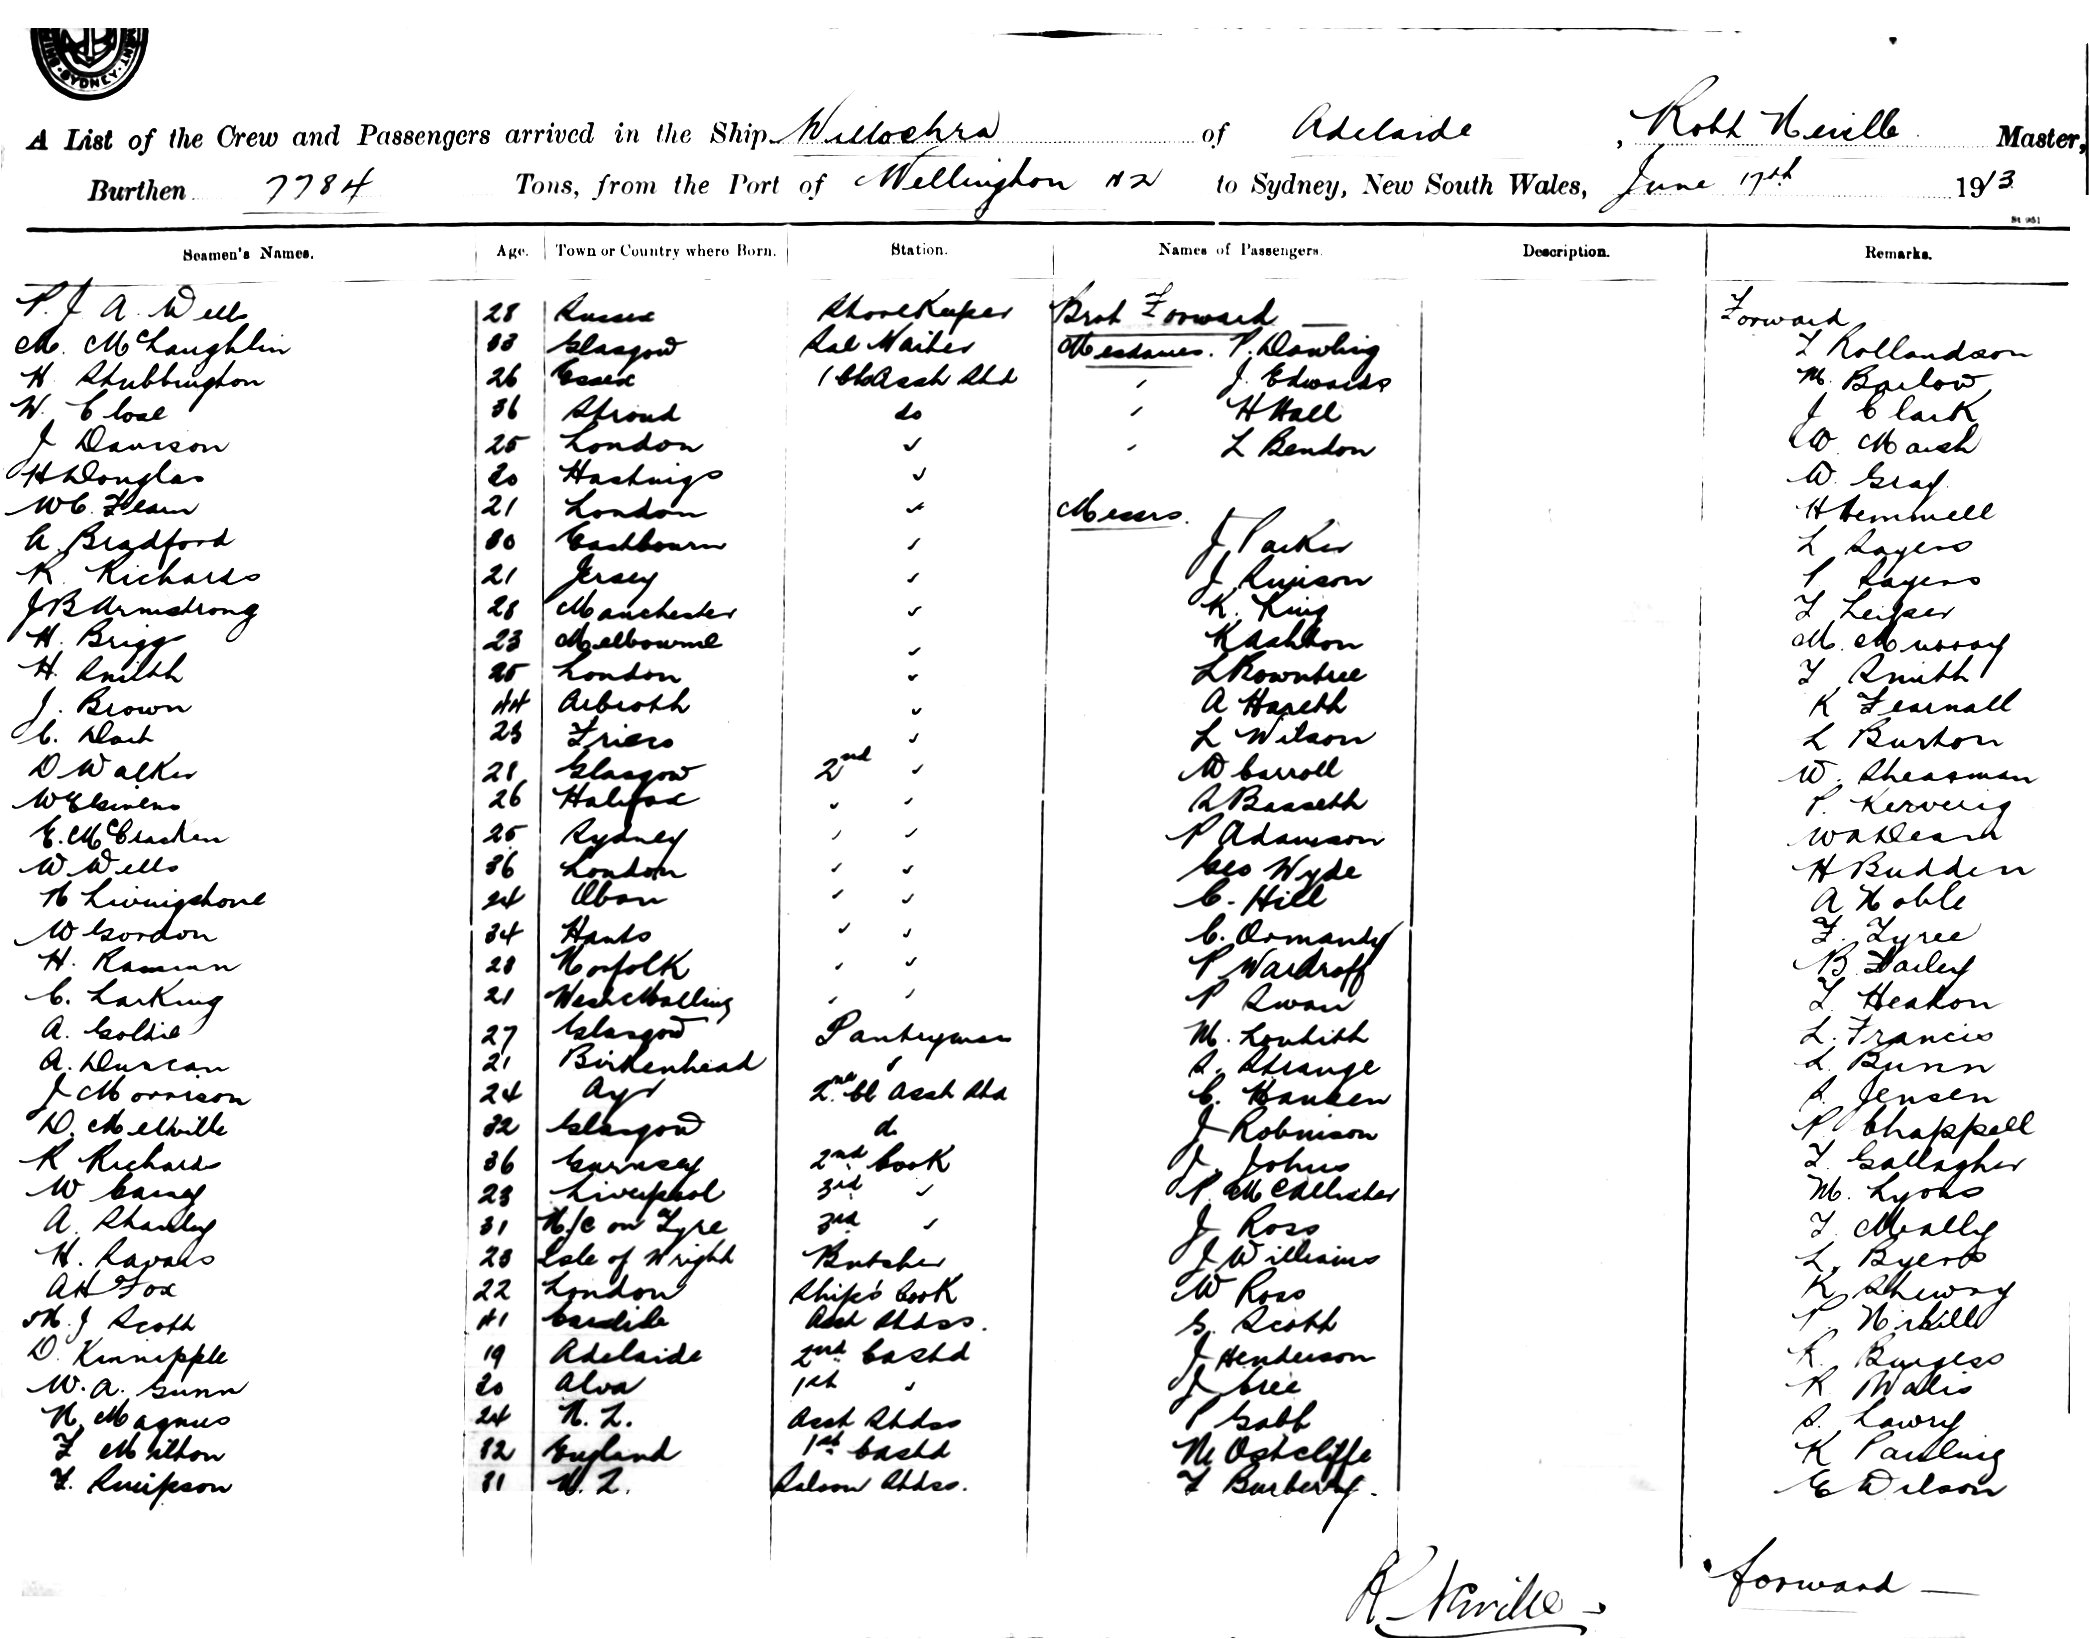 SYDNEY
A List of the Crew and Passengers arrived in the Ship Willochra of Adelaide, Robt Neville Master,
Burthen 7784 Tons, from the Port of Wellington NZ to Sydney, New South Wales, June 17th 1913
Seamen's Names. Age. Town or Country where Born. Station. Names of Passengers. Description. Remarks.
P. J A. Wells 28 Sussex Storekeeper Brot Forward Forward
M. McLaughlin 33 Glasgow Sal Waiter Mesdames. P. Dowling F Rollandson
H Stubbington 26 Essex 1 Cl Asst Std " J. Edwards M. Barlow
W. Close 36 Stroud do " H Hall J Clark
J Davison 25 London " " L Bendon W. Marsh
H Douglas 20 Hastings " W. Gray
W C. Fearn 21 London " Messrs. H Gemmell
A Bradford 30 Eastbourn " J. Parker L Sayers
R. Richards 21 Jersey " J. Simson P Sayers
J B Armstrong 28 Manchester " K. King F Leifser
H. Brigg 23 Melbourne " K Ashton M. Murray
H. Smith 25 London " L Rowntree F Smith
J. Brown 44 Arbroth " A Haseth K Fearnall
C. Dart 23 " L Wilson L Burton
D Walker 28 Glasgow 2nd " W Carroll W. Sheasman
W E Givens 26 Halifax " " S Bassett P.
E. McCracken 25 Sydney " " P Adamson W A Dearn
W Wells 36 London " " Geo Wyde H Budden
N Livingstone 24 Oban " " C. Hill A Noble
W Gordon 34 Hants " " C. Ormandy F. Tyree
H. Raman 28 Norfolk " " P Wardroff B. Dailey
C. Larking 21 West Malling " " P Swan F Heaton
A. Goldie 27 Glasgow Pantryman M. Loubith L. Francis
A. Duncan 21 Birkenhead " S. Strange L. Bunn
J Morrison 24 Ayr 2nd Cl Asst Std C. Hansen S. Jensen
D. Melville 32 Glasgow do J Robinson P Chappell
R Richards 36 Gurnsey 2nd Cook J. Johns F. Gallagher
W Carney 23 Liverpool 3rd " P. McCallister M. Lyons
A. Stanley 31 N/C on Tyre 3rd " J Ross F. Meally
H. Savars 23 Isle of Wright Butcher J Williams L. Byers
A H Fox 22 London Ship's Cook W Ross K Stewry
M. J Scott 41 Carslile Asst Stdss. G. Scott P.
D. Kinnipple 19 Adelaide 2nd Ca Std J Henderson R. Burgess
W. A. Gunn 20 Alva 1st " J Cree R Walis
N. Magnus 24 N. Z. Asst Stdss P Gabb S. Lawry
F Milton 32 England 1st Ca Std M Ostcliffe K Pauling
F. Simpson 31 N. Z. Saloon Stdss. F Burbery. E Wilson
R Neville forward